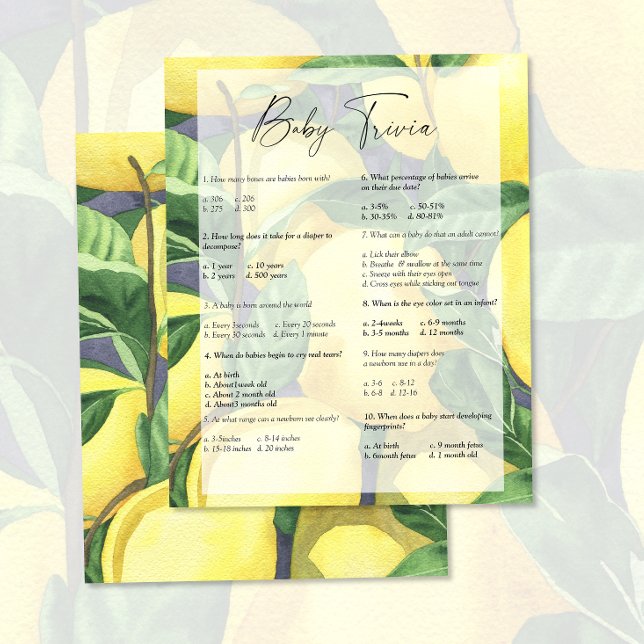 Baby Trivia
1. How many bones are babies born with?
a. 306 c. 206
b. 275 d. 300
2. How long does it take for a diaper to
decompose?
a. 1 year c. 10 years
b. 2 years d. 500 years
3. A baby is born around the world
a. Every 3seconds c. Every 20 seconds
b. Every 30 seconds d. Every 1 minute
4. When do babies begin to cry real tears?
a. At birth
b. About1week old
c. About 2 month old
d. About3 months old
5. At what range can a newborn see clearly?
a. 3-5inches c. 8-14 inches
b. 15-18 inches d. 20 inches
6. What percentage of babies arrive
on their due date?
a. 3-5% c. 50-51%
b. 30-35% d. 80-81%
7. What can a baby do that an adult cannot?
a. Lick their elbow
b. Breathe & swallow at the same time
c. Sneeze with their eyes open
d. Cross eyes while sticking out tongue
8. When is the eye color set in an infant?
a. 2-4weeks c. 6-9 months
b. 3-5 months d. 12 months
9. How many diapers does
a newborn use in a day?
a. 3-6 c. 8-12
b. 6-8 d. 12-16
10. When does a baby start developing
fingerprints?
a. At birth c. 9 month fetus
b. 6month fetus d. 1 month old